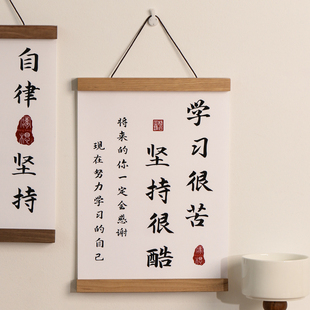 学习很苦
坚持很酷
将来的你一定会感谢
现在努力学习的自己
自律
坚持